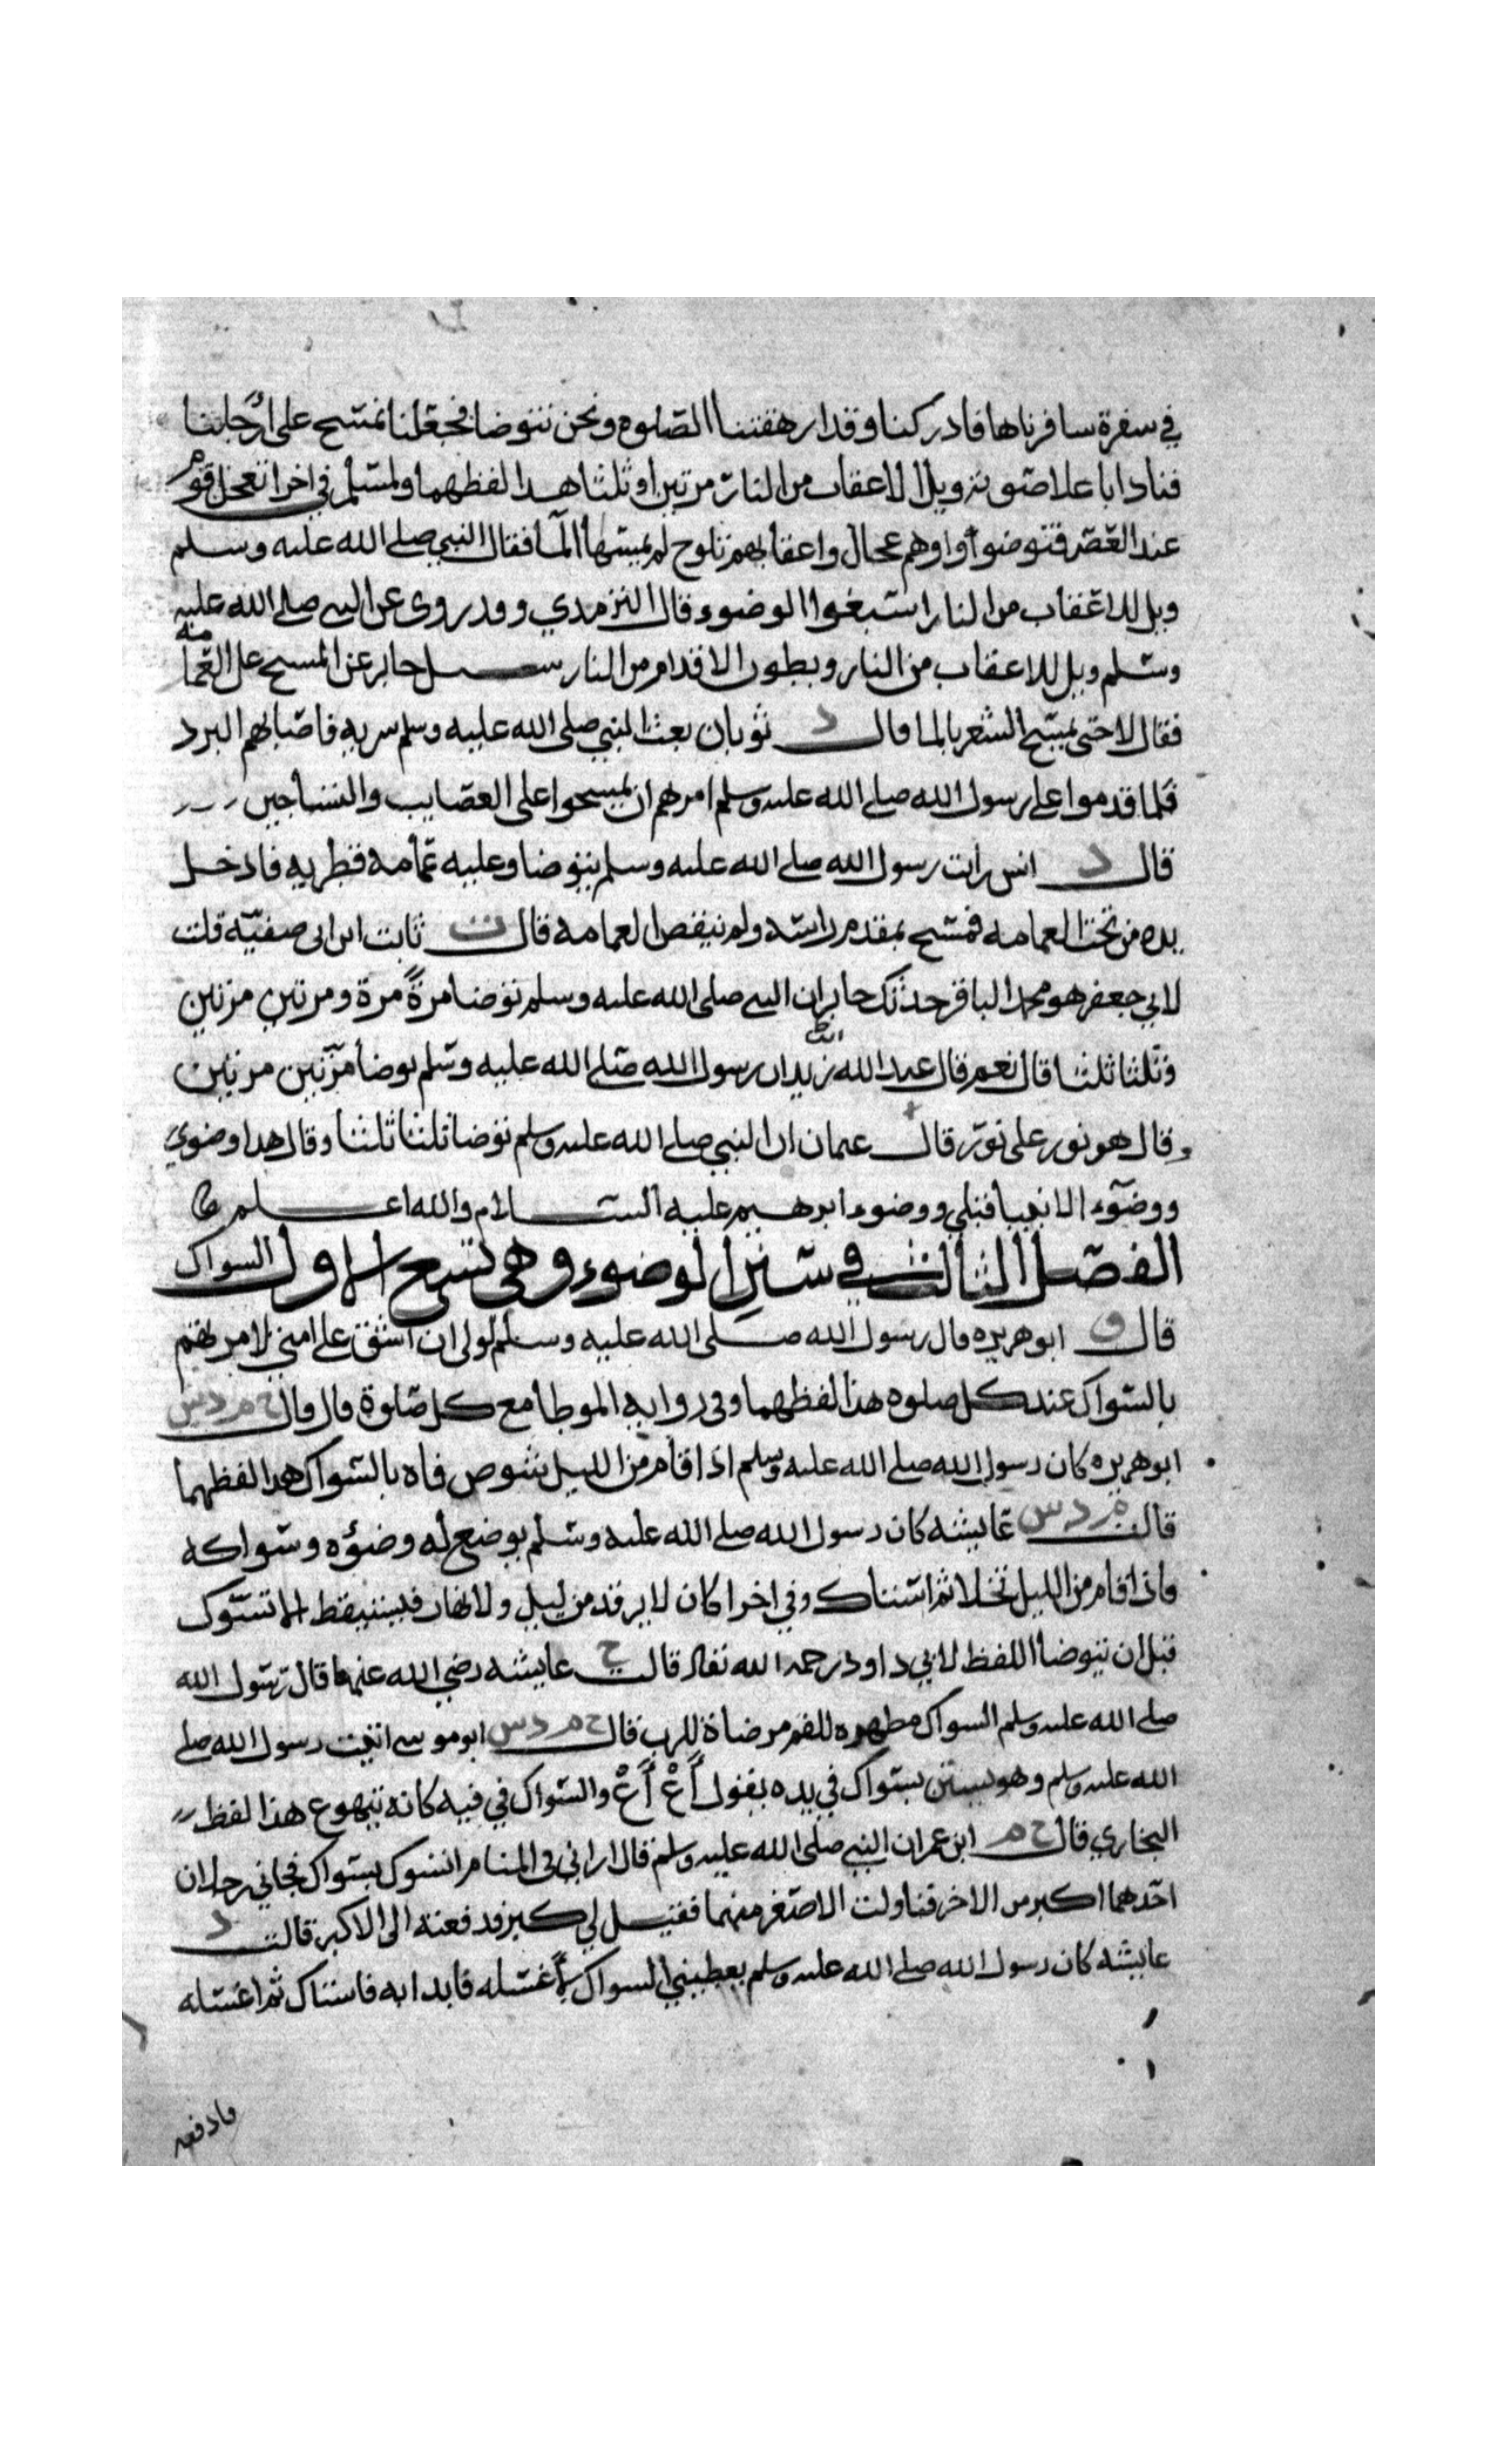 في سفرة سافرناها فادركنا وقد ارهقتنا الصلوه ونحن نتوضا فجعلنا نمسح على ارجلنا
فنادا باعلا صوته ويل للاعقاب من النار مرتين او ثلثا هذا لفظهما ولمسلم في اخرا تعجل قوم
عند العصر فتوضوا وهم عجال واعقابهم تلوح لم يمسها الما فقال النبي صلى الله عليه وسلم
ويل للاعقاب من النار اسبغوا الوضوء قال الترمدي وقد روى عن النبي صلى الله عليه
وسلم ويل للاعقاب من النار وبطون الاقدام من النار سىل جابر عن المسح على العمامه
فقال لا حتى يمسح الشعر بالما قال د ثوبان بعث النبي صلى الله عليه وسلم سريه فاصابهم البرد
فلما قدموا على رسول الله صلى الله عليه وسلم امرهم ان يمسحوا على العصايب والتساخين
قال د انس رايت رسول الله صلى الله عليه وسلم يتوضا وعليه عمامه قطريه فادخل
يده من تحت العمامه فمسح بمقدم راسه ولم ينقض العمامه قال ت ثابت ابن ابى صفيه قلت
لابي جعفر هو محمد الباقر حدثك جابر ان النبي صلى الله عليه وسلم توضا مرةً مرة ومرتين مرتين
وثلثا ثلثا قال نعم قال عبد الله بن زيد ان رسول الله صلى الله عليه وسلم توضا مرتين مرتين
وقال هو نور على نور قال عثمان ان النبي صلى الله عليه وسلم توضا ثلثا ثلثا وقال هذا وضوي
ووضوء الانبيا قبلي ووضوء ابرهيم عليه السلام والله اعلم
الفصل الثالث في سنن الوضوء وهي تسع الاول السواك
قال و ابو هريره قال رسول الله صلى الله عليه وسلم لولى ان اشق على امتي لامرتهم
بالسواك عند كل صلوه هذا لفظهما وفى روايه الموطا مع كل صلوة قال قال خ م د س
ابو هريره كان رسول الله صلى الله عليه وسلم اذا قام من الليل يشوص فاه بالسواك هذا لفظهما
قالت م د س عايشه كان رسول الله صلى الله عليه وسلم يوضع له وضؤه وسواكه
فاذا قام من الليل تخلا ثم استاك وفي اخرا كان لا يرقد من ليل ولا نهار فيستيقظ الا تسوك
قبل ان يتوضا اللفظ لابي داود رحمه الله تعالى قالت خ عايشه رضي الله عنها قال رسول الله
صلى الله عليه وسلم السواك مطهره للفم مرضاة للرب قال خ م د س ابو موسى اتيت رسول الله صلى
الله عليه وسلم وهو يستن بسواك في يده يقول أُعْ أُعْ والسواك في فيه كانه يتهوع هذا لفظ
البخاري قال خ م ابن عمر ان النبي صلى الله عليه وسلم قال اراني فى المنام اتسوك بسواك فجاني رجلان
احدهما اكبر من الاخر فناولت الاصغر منهما فقيل لي كبر فدفعته الى الاكبر قالت د
عايشه كان رسول الله صلى الله عليه وسلم يعطيني السواك لأغسله فابدا به فاستاك ثم اغسله
وادفعه